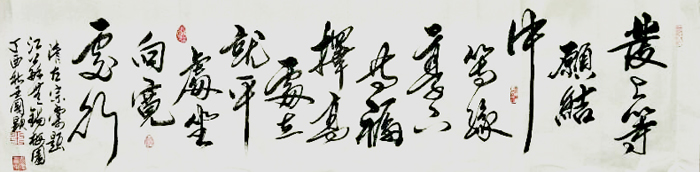 發上等
願結
中
等緣
享下
等福
擇高
處立
就平
處坐
向寬
處行
清左宗棠題
江蘇無錫梅園
丁酉秋